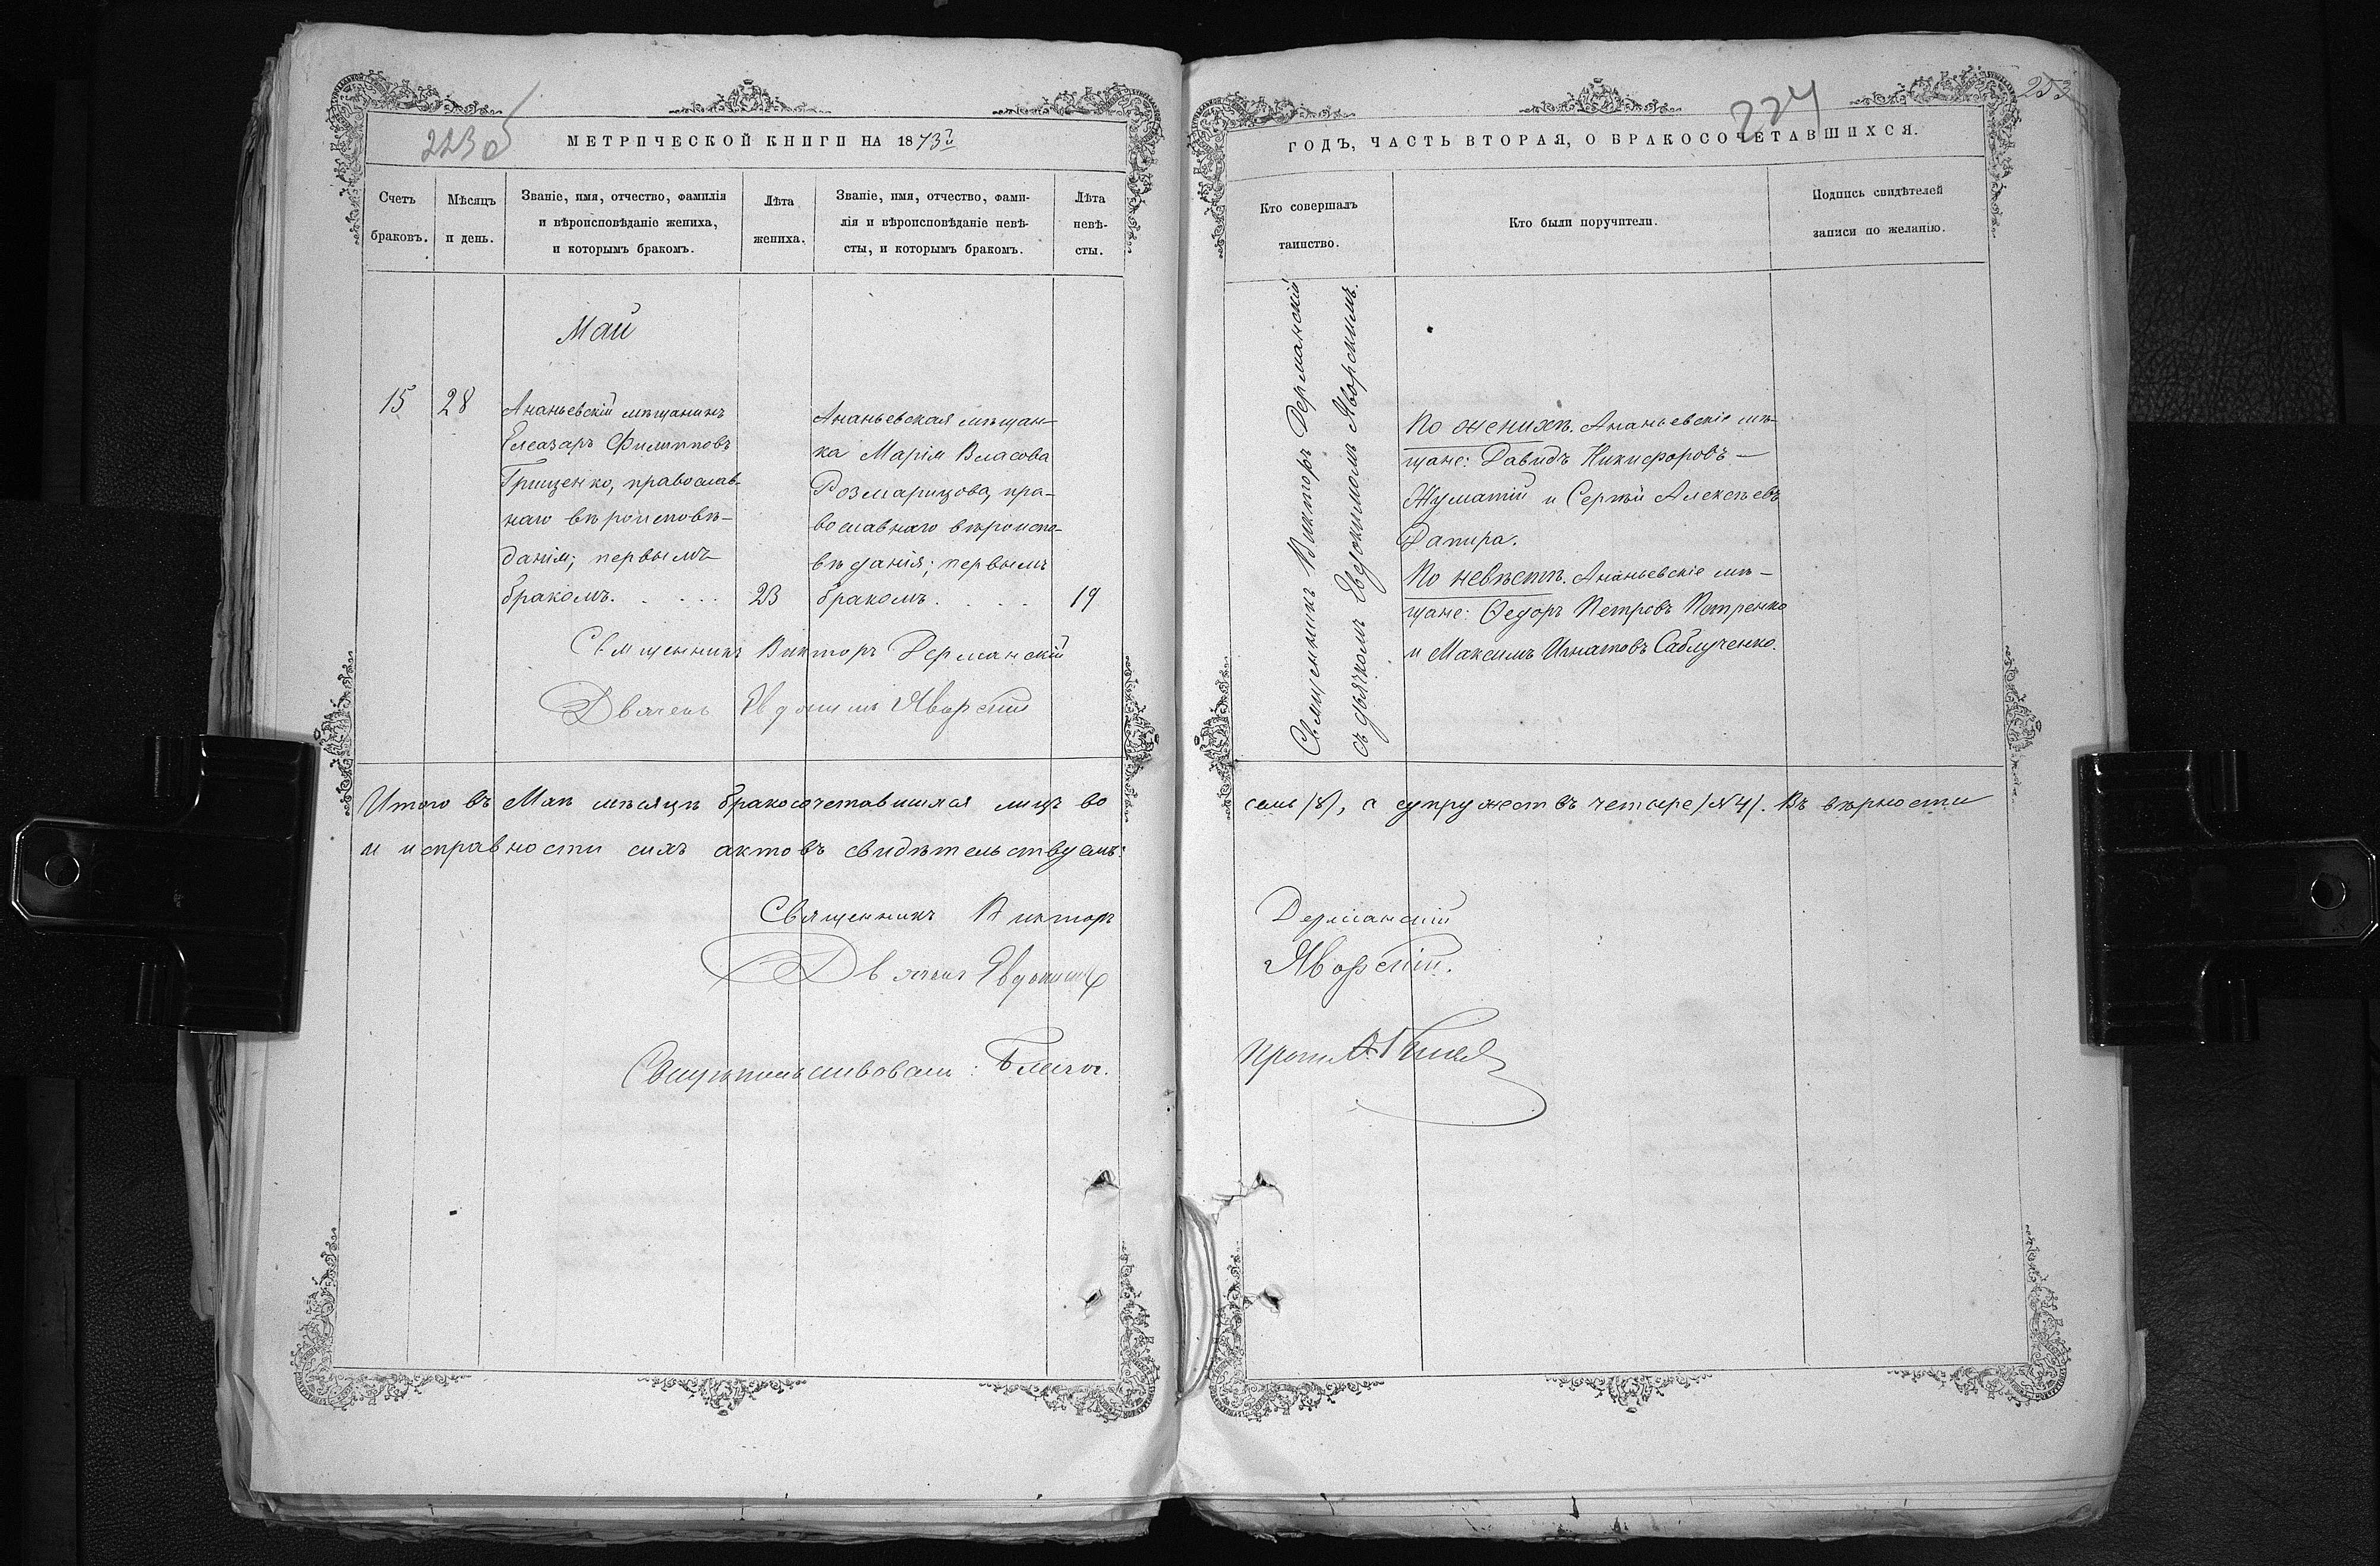 223 об
МЕТРИЧЕСКОЙ КНИГИ НА 1873й
Счетъ браковъ.
Мѣсяцъ и день.
Званіе, имя, отчество, фамилія
и вѣроисповѣданіе жениха,
и которымъ бракомъ.
Лѣта
жениха.
Званіе, имя, отчество, фами-
лія и вѣроисповѣданіе невѣ-
сты, и которымъ бракомъ.
Лѣта
невѣ-
сты.
Май
15
28
Ананьевскій мѣщанинъ
Елеазаръ Филипповъ
Гриценко, православ-
наго вѣроисповѣ-
данія; первымъ
бракомъ. . . . .
23
Ананьевская мѣщан-
ка Марія Власова
Розмарицова, пра-
вославнаго вѣроиспо-
вѣданія; первымъ
бракомъ. . . .
19
Священникъ Викторъ Дерманскій
Дьячекъ Евдокимъ Яворскій
Итого въ Маѣ мѣсяцѣ бракосочетавшихся лицъ во
и исправности сихъ актовъ свидѣтельствуемъ:
Священникъ Викторъ
Дьячекъ Евдокимъ
Свидѣтельствовалъ: Благоч.
224
253
ГОДЪ, ЧАСТЬ ВТОРАЯ, О БРАКОСОЧЕТАВШИХСЯ.
Кто совершалъ
таинство.
Кто были поручители.
Подпись свидѣтелей
записи по желанію.
Священникъ Викторъ Дерманскій
съ дьячкомъ Евдокимомъ Яворскимъ.
По женихѣ. Ананьевскіе мѣ-
щане: Давидъ Никифоровъ —
Жуматій и Сергѣй Алексѣевъ
Дапира.
По невѣстѣ. Ананьевскіе мѣ-
щане: Ѳедоръ Петровъ Петренко
и Максимъ Игнатовъ Саблученко.
семь (8), а супружествъ четыре (№4). Въ вѣрности
Дерманскій
Яворскій.
Прот.